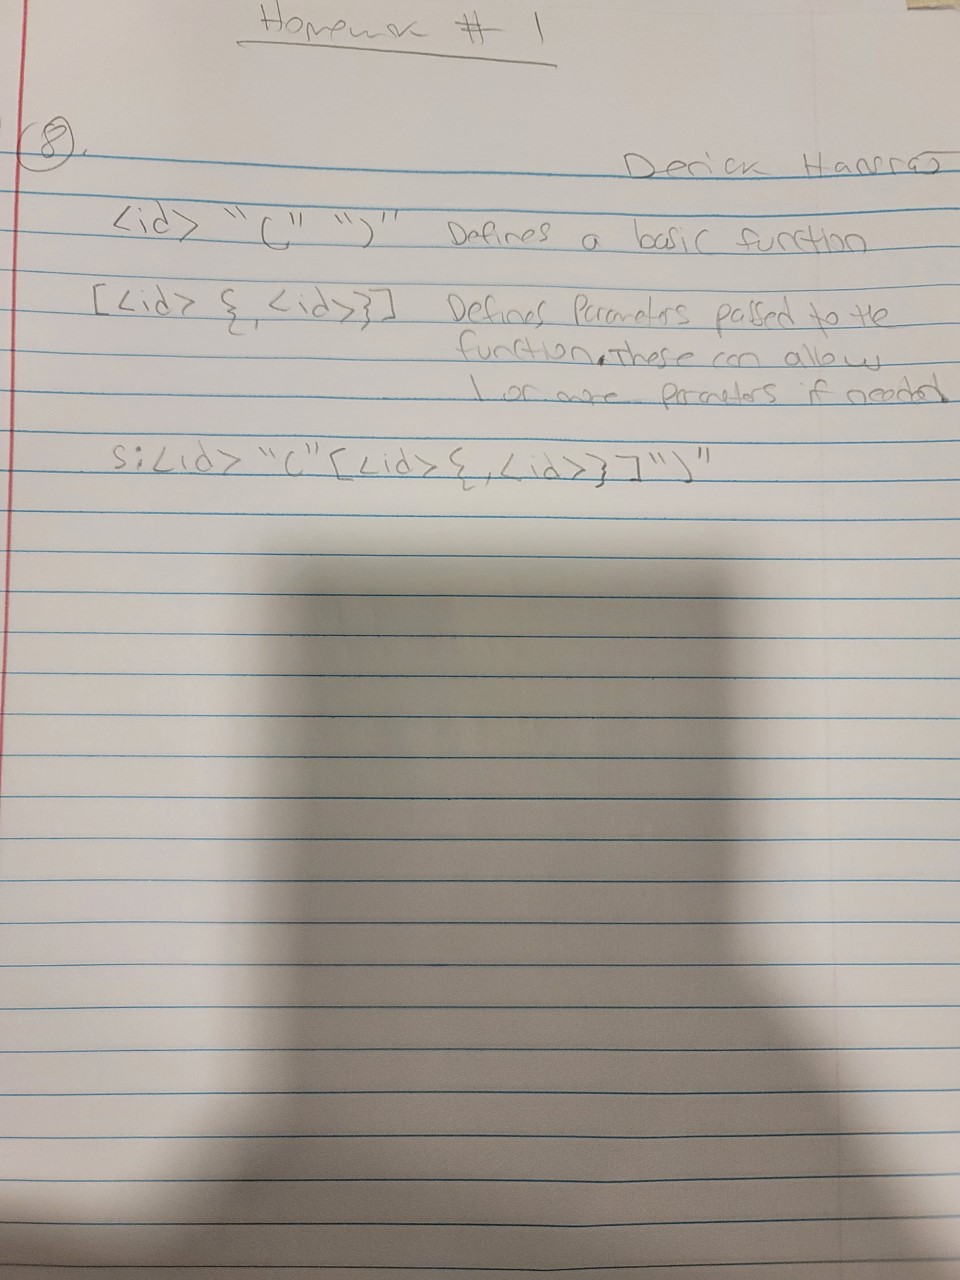 Homework # 1
8.
Derick
<id> "(" ")" Defines a basic function
[<id> {, <id>}] Defines Parameters passed to the
function. These can allow
1 or more parameters if needed
S: <id> "(" [<id> {, <id>}] ")"